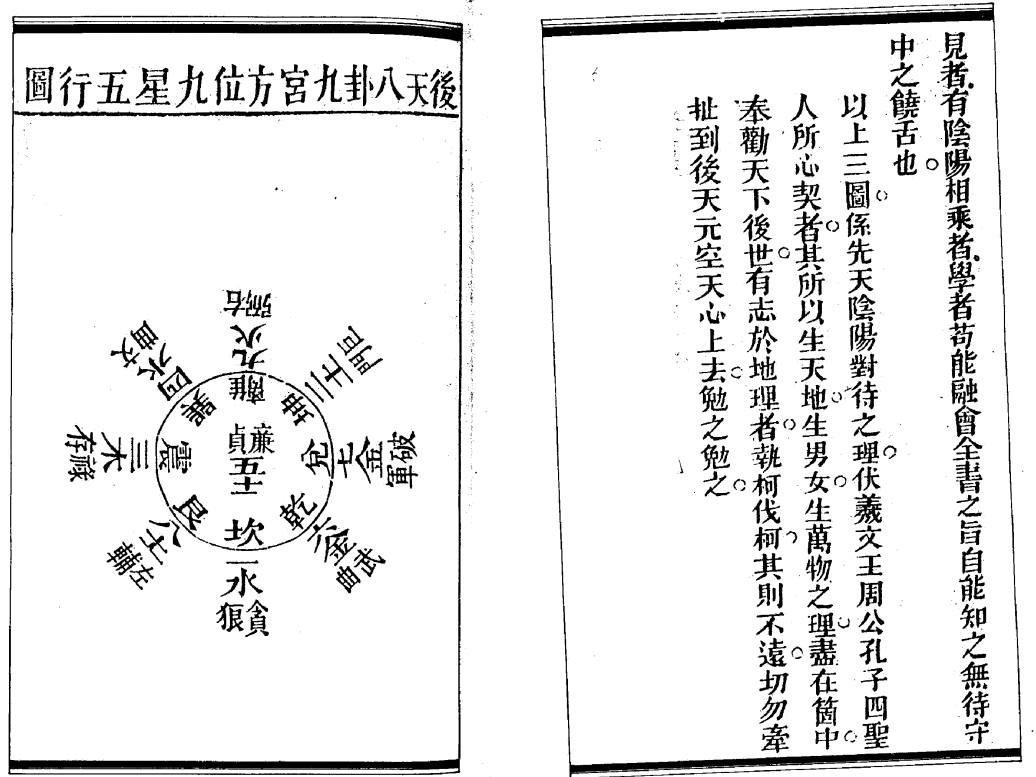 見者有陰陽相乘者學者苟能融會全書之旨自能知之無待守
中之饒舌也
以上三圖係先天陰陽對待之理伏羲文王周公孔子四聖
人所心契者其所以生天地生男女生萬物之理盡在箇中
奉勸天下後世有志於地理者執柯伐柯其則不遠切勿牽
扯到後天元空天心上去勉之勉之
後天八卦九宮方位九星五行圖
離
九火
右弼
坤
二土
巨門
兌
七金
破軍
乾
六金
武曲
坎
一水
貪狼
艮
八土
左輔
震
三木
祿存
巽
四木
文曲
廉貞
五土